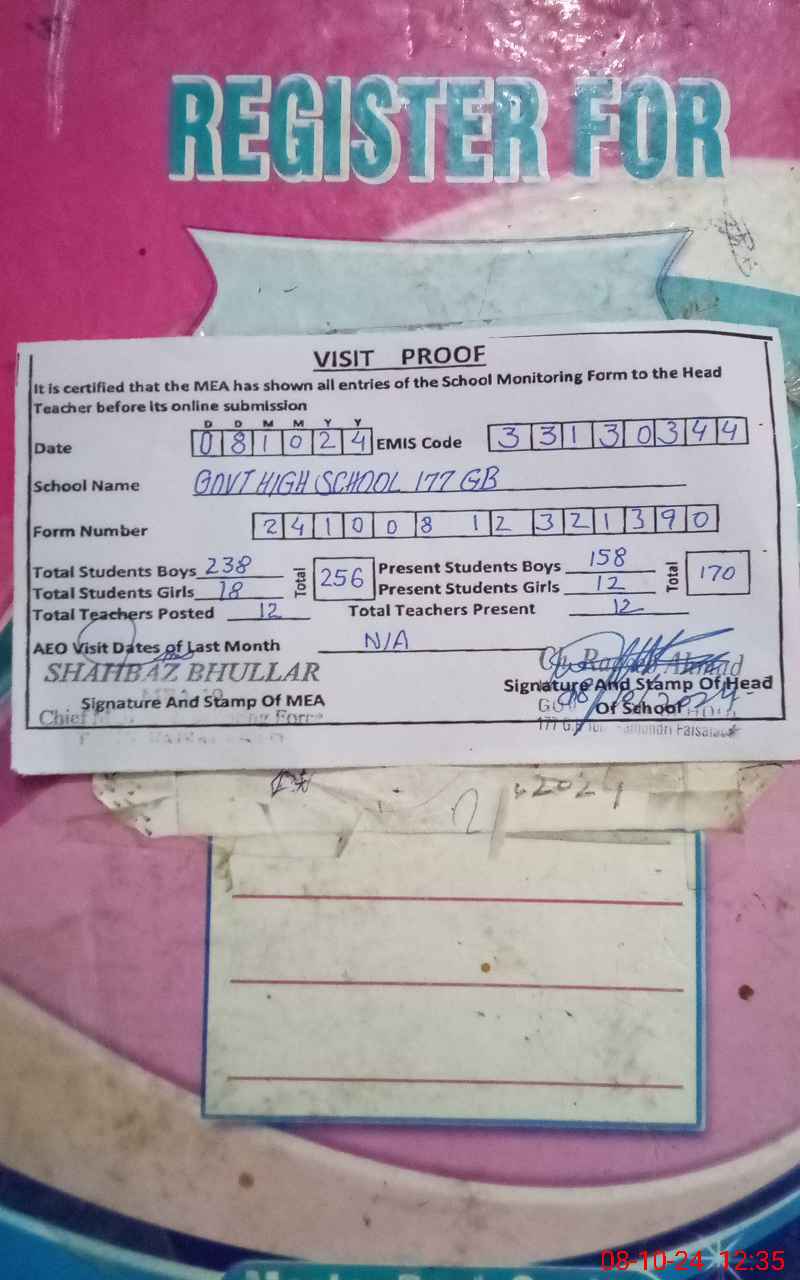 REGISTER FOR
VISIT PROOF
It is certified that the MEA has shown all entries of the School Monitoring Form to the Head
Teacher before its online submission
D D M M Y Y
Date 0 8 1 0 2 4 EMIS Code 3 3 1 3 0 3 4 4
School Name GOVT HIGH SCHOOL 177 GB
Form Number 2 4 1 0 0 8 1 2 3 2 1 3 9 0
Total Students Boys 238 Total 256 Present Students Boys 158 Total 170
Total Students Girls 18 Present Students Girls 12
Total Teachers Posted 12 Total Teachers Present 12
AEO Visit Dates of Last Month N/A
SHAHBAZ BHULLAR
Signature And Stamp Of MEA Signature And Stamp Of Head
Of School
2024
08-10-24 12:35